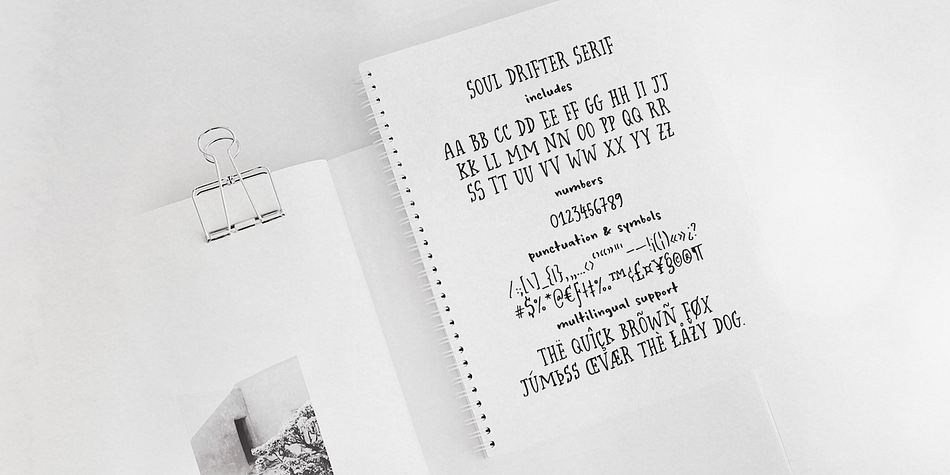 SOUL DRIFTER SERIF
includes
AA BB CC DD EE FF GG HH II JJ
KK LL MM NN OO PP QQ RR
SS TT UU VV WW XX YY ZZ
numbers
0123456789
punctuation & symbols
/.:;[\]_{|},,,…‹›''""«»"",, –—!¡(¦)«»¿?
#$%*@€ƒ‡†%‰™¢£¤¥§©®¶
multilingual support
THË QUÎÇK BRÕWÑ FØX
JÚMÞSS ŒVÆR THÈ ŁÅŽY DOG.